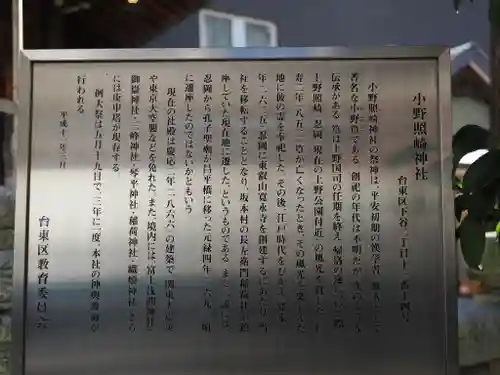 小野照崎神社
台東区下谷二丁目十三番十四号
小野照崎神社の祭神は、平安初期の漢学者、歌人として
著名な小野篁である。創祀の年代は不明だが、次のような
伝承がある。篁は上野国司の任期を終え、帰路の途についた際
上野照崎（忍岡、現在の上野公園付近）の風光を賞した。仁
寿二年（八五二）篁が亡くなったとき、その風光を愛した
地に彼の霊を奉祀した。その後、江戸時代をむかえ、寛永
二年（一六二五）忍岡に東叡山寛永寺を創建するにあたり、当
社を移転することとなり、坂本村の長左衛門稲荷社が鎮
座していた現在地に遷した、というものである。また一説には、
忍岡から孔子聖廟が昌平橋に移った元禄四年（一六九一）頃
に遷したのではないかともいう。
現在の社殿は慶応二年（一八六六）の建築で、関東大震災
や東京大空襲などを免れた。また、境内には、富士浅間神社・
御嶽神社・三峰神社・琴平神社・稲荷神社・織姫神社、さら
には庚申塔が現存する。
例大祭は五月十九日で、三年に一度、本社の神輿渡御が
行われる。
平成十一年三月
台東区教育委員会